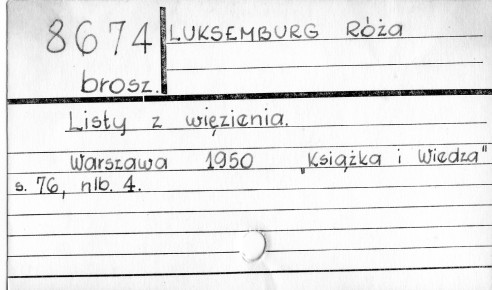 8674 LUKSEMBURG Róża
brosz.
Listy z więzienia.
Warszawa 1950 „Książka i Wiedza"
s. 76, nlb. 4.